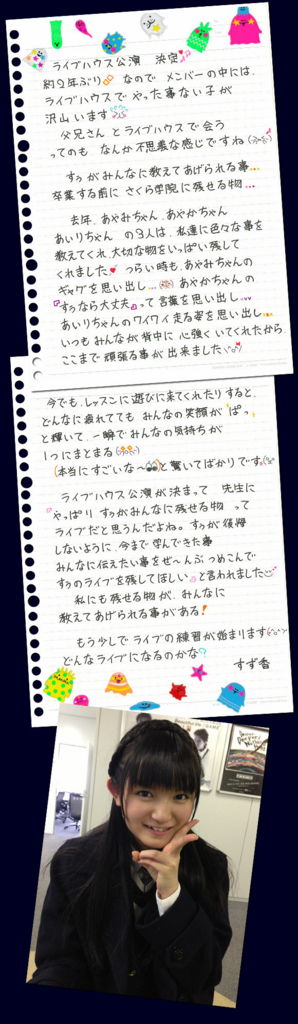 ライブハウス公演 決定
約2年ぶり なので メンバーの中には、
ライブハウスで やった事ない子が
沢山います
父兄さん とライブハウスで会う
っての も なんか不思議な感じですね
すぅがみんなに教えてあげられる事…
卒業する前に さくら学院に残せる物…
去年、あやみちゃん、あやかちゃん
あいりちゃん の3人は、私達に色々な事を
教えてくれ、大切な物をいっぱい残して
くれました つらい時も、あやみちゃんの
ギャグを思い出し… あやかちゃんの
"すぅなら大丈夫"って言葉を思い出し…
あいりちゃんのワイワイ走る姿を思い出し…
いつもみんなが背中に 心強くいてくれたから、
ここまで頑張る事が出来ました
今でも、レッスンに遊びに来てくれたりすると、
どんなに疲れてても みんなの笑顔が ぱっ
と輝いて、一瞬でみんなの気持ちが
1つにまとまる
(本当にすごいな〜)と驚いてばかりです
ライブハウス公演が決まって 先生に
やっぱり すぅがみんなに残せる物 って
ライブだと思うんだよね。すぅが後悔
しないように、今まで学んできた事
みんなに伝えたい事をぜ〜んぶつめこんで
すぅのライブを残してほしい と言われました
私にも残せる物が、みんなに
教えてあげられる事がある!
もう少しでライブの練習が始まります
どんなライブになるのかな?
すず香